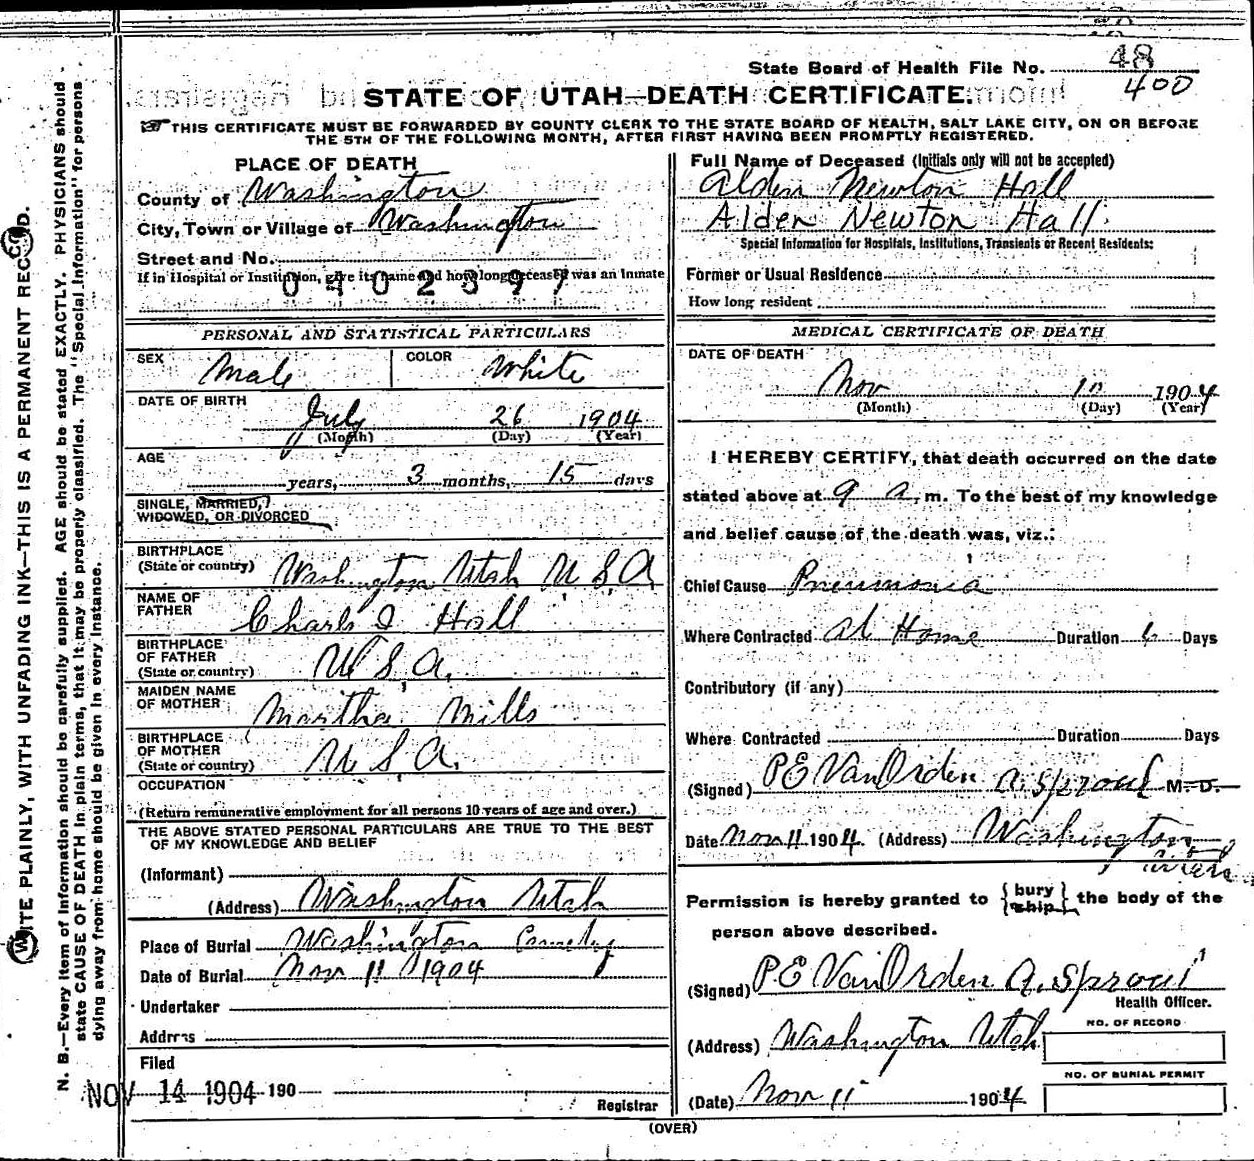 State Board of Health File No. 48
400
STATE OF UTAH—DEATH CERTIFICATE.
THIS CERTIFICATE MUST BE FORWARDED BY COUNTY CLERK TO THE STATE BOARD OF HEALTH, SALT LAKE CITY, ON OR BEFORE
THE 5TH OF THE FOLLOWING MONTH, AFTER FIRST HAVING BEEN PROMPTLY REGISTERED.
PLACE OF DEATH
County of Washington
City, Town or Village of Washington
Street and No.
If in Hospital or Institution, give its name and how long deceased was an Inmate
0402397
Full Name of Deceased (Initials only will not be accepted)
Alden Newton Hall
Alden Newton Hall
Special Information for Hospitals, Institutions, Transients or Recent Residents:
Former or Usual Residence
How long resident
PERSONAL AND STATISTICAL PARTICULARS
SEX Male COLOR White
DATE OF BIRTH
July 26 1904
(Month) (Day) (Year)
AGE
years, 3 months, 15 days
SINGLE, MARRIED,
WIDOWED, OR DIVORCED
BIRTHPLACE
(State or country) Washington Utah U. S. A.
NAME OF
FATHER Charls I Hall
BIRTHPLACE
OF FATHER
(State or country) U S A.
MAIDEN NAME
OF MOTHER Martha Mills
BIRTHPLACE
OF MOTHER
(State or country) U S A.
OCCUPATION
(Return remunerative employment for all persons 10 years of age and over.)
THE ABOVE STATED PERSONAL PARTICULARS ARE TRUE TO THE BEST
OF MY KNOWLEDGE AND BELIEF
(Informant)
(Address) Washington Utah
Place of Burial Washington
Date of Burial Nov 11 1904
Undertaker
Address
Filed
NOV 14 1904 190
Registrar
MEDICAL CERTIFICATE OF DEATH
DATE OF DEATH
Nov 10 1904
(Month) (Day) (Year)
I HEREBY CERTIFY, that death occurred on the date
stated above at 9 a. m. To the best of my knowledge
and belief cause of the death was, viz.:
Chief Cause Pneumonia
Where Contracted At Home Duration Days
Contributory (if any)
Where Contracted Duration Days
(Signed) P E VanOrden A. Sproul M. D.
Date Nov 11 1904. (Address) Washington
Utah
Permission is hereby granted to {bury
ship} the body of the
person above described.
(Signed) P E VanOrden A. Sproul
Health Officer.
(Address) Washington Utah
NO. OF RECORD
NO. OF BURIAL PERMIT
(Date) Nov 11 1904.
(OVER)
WRITE PLAINLY, WITH UNFADING INK—THIS IS A PERMANENT RECORD.
N. B.—Every item of information should be carefully supplied. AGE should be stated EXACTLY. PHYSICIANS should
state CAUSE OF DEATH in plain terms, that it may be properly classified. The "Special Information" for persons
dying away from home should be given in every instance.